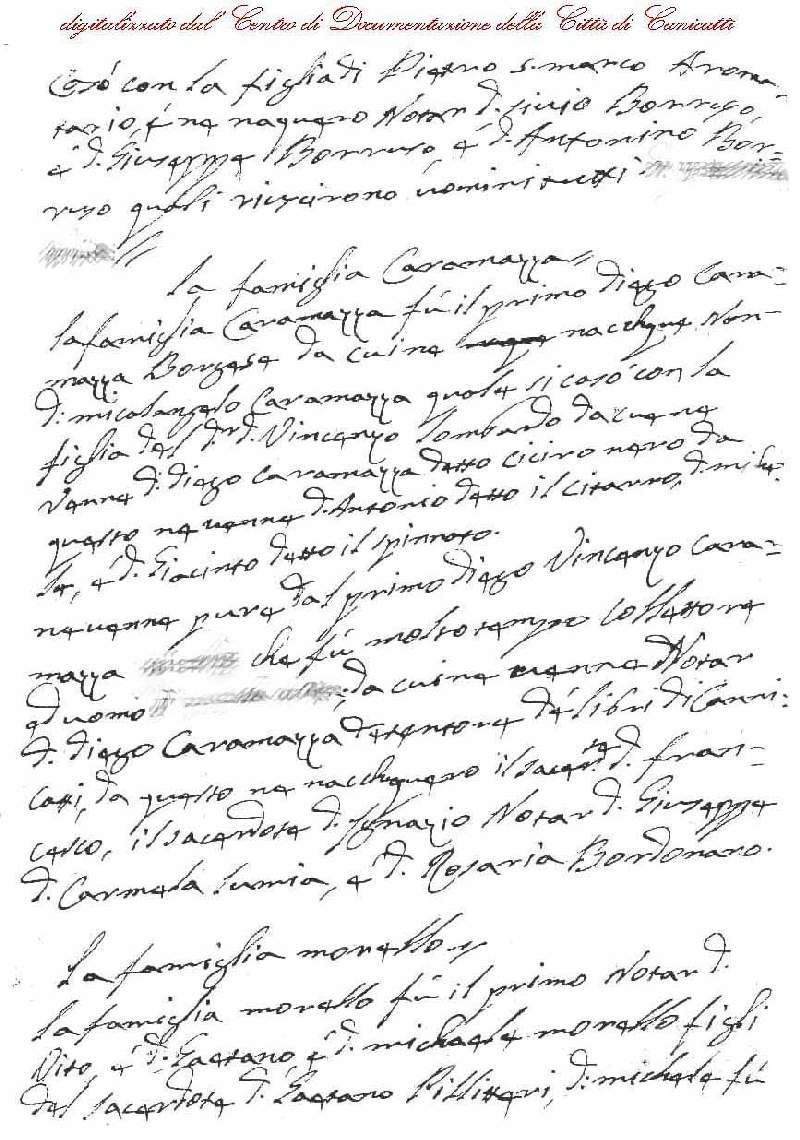 digitalizzato dal Centro di Documentazione della Città di Canicattì
Casò con la figlia di Pietro s. marco Aroma-
tario, è ne naquero Notar d. Livio Borruso,
è d. Giuseppe Borruso, è d. Antonino Bor-
ruso quali riuscirono uomini tutti
la famiglia Caramazza
la famiglia Caramazza fù il primo diego Cara-
mazza Borgese da cui ne nacchque Non-
d. micalangelo Caramazza quale si casò con la
figlia del dr. d. Vincenzo lombardo da cui ne
venne d. diego Caramazza detto ciciro nero da
questo ne venne d. Antonio detto il citarro, d. mihe-
le, è d. Giacinto detto il spinnato.
ne venne pure dal primo diego Vincenzo Cara-
mazza che fù molto tempo Collettore
ed uomo ; da cui ne venne Notar
d. diego Caramazza detentore de libri di Canni-
catti, da questo ne nacchquero il sacerdte d. fran-
cesco, il sacerdote d. Ignazio Notar d. Giuseppe
d. Carmela lumia, è d. Rosaria Bordonaro.
la famiglia morello
la famiglia morello fù il primo Notar d.
Vito, è d. Gaetano è d. michaele morello figli
del sacerdote d. Gaetano Pillitteri, d. michele fù